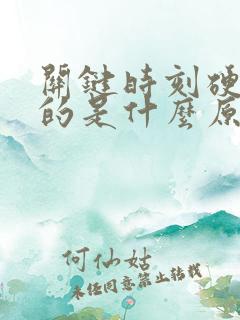 關鍵時刻硬
的是什麼原
何仙姑
未经同意禁止转载